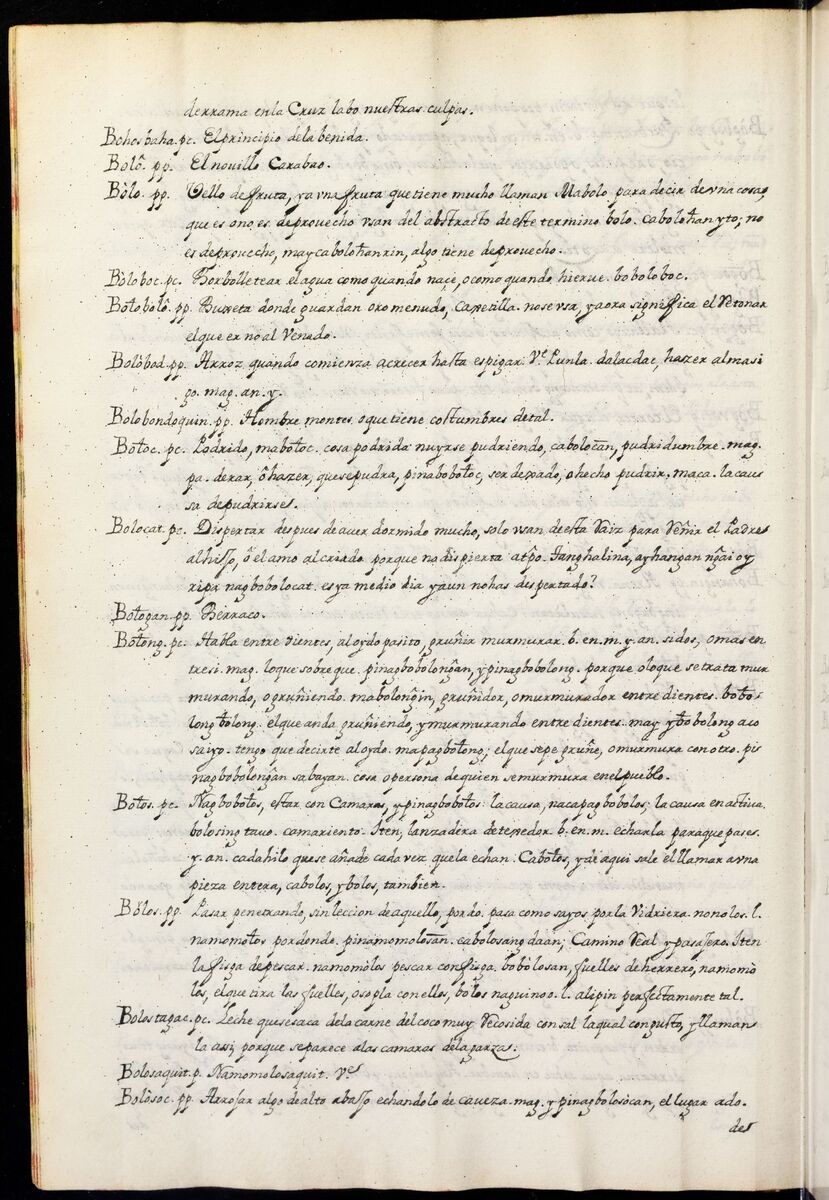 derrama en la Cruz labo nuestras culpas.
Bohos baha. pc. El principio de la benida.
Bolô. pp. El nouillo Carabao.
Bòlo. pp. Vello de fruta, y a vna fruta que tiene mucho llaman Mabolo para decir de vna cosa,
que es o no es de prouecho vsan del abstracto de este termino bolo. cabolohan yto; no
es de prouecho, may cabolohan rin, algo tiene de provecho.
Bòloboc. pc. Borbolletear el agua como quando naçe, o como quando hierue. boboloboc.
Bolobolô. pp. Buxeta donde guardan oro menudo, Caxetilla. no se vsa, y aora significa el Retonar
el querno al Venado.
Bolòbod. pp. Arroz quando comienza a crecer hasta espigar. Vᵉ Punla. dalacdac, haszer almasi
go. mag. an. y.
Bolobondoquin. pp. Hombre montes o que tiene costumbres de tal.
Boloc. pc. Podrido, maboloc. cosa podrida nuyrse pudriendo, cabolocan, pudridumbre. mag.
pa. dexar, ô haszer, que se pudra, pinaboboloc, ser dexado, o hecho pudrir, maca. la cau
sa de pudrirse.
Bolocat. pc. Dispertar despues de aver dormido mucho, solo vsan de esta Raiz para Reñir el Padre
al hisso, ô el amo al criado porque no dispierta a tp̃o. Tanghalina, ay hangan ng̃ai oy
ripa nagbobolocat. es ya medio dia y aun no has despertado?
Bologan. pp. Berraco.
Bolong. pc. Habla entre dientes, al oydo pasito, gruñir murmurar. b. en. m. y. an. si dos, o mas en
tre si. mag. lo que sobre que. pinagbobolong̃an, y pinagbobolong. porque o lo que se trata mur
murando, o gruñiendo. mabolong̃in, gruñidor, o murmurador entre dientes. bobo
long bolong. el que anda gruñiendo, y murmurando entre dientes. may ybobolong aco
sa iyo. tengo que decirte al oydo. mapagbolong; el que sepe gruñe, o murmura con otro. pi
nagbobolong̃an sa bayan. cosa o persona de quien se murmura en el pueblo.
Bolos. pc. Nagbobolos, estar con Camaras, y pinagbobolos: la causa, nacapagbobolos; la causa en activa.
bolosing tavo. camariento. Iten, lanzadera de texedor. b. en. m. echarla para que pase.
y. an. cada hilo que se añade cada vez que la echan. Cabolos, y de aqui sale el llamar a vna
pieza entera, cabolos, y bolos, tambien.
Bòlos. pp. Pasar penetrando, sin leccion de aquello, por do. pasa como rayos por la Vidriera. nonolos. l.
namomolos por donde. pinamomolosan. cabolosang daan; Camino Real y pasajero. Iten
la fisga de pescar. namomòlos pescar con fisga, bobòlosan, fuelles de herrero, namomò
los, el que tira los fuelles, o sopla con ellos, bòlos naguinoo. l. alipin perfectamente tal.
Bolostagac. pc. Leche que se saca de la carne del coco muy Recosida con sal la qual con gusto, y llaman
la assi porque se parece a las camaras de la garzas.
Bolosaquit. p. Namomolosaquit. Vᵉ
Bolòsoc. pp. Arrojar algo de alto abasso echandolo de caveza. mag. y pinagbolosòcan, el lugar ado.
de